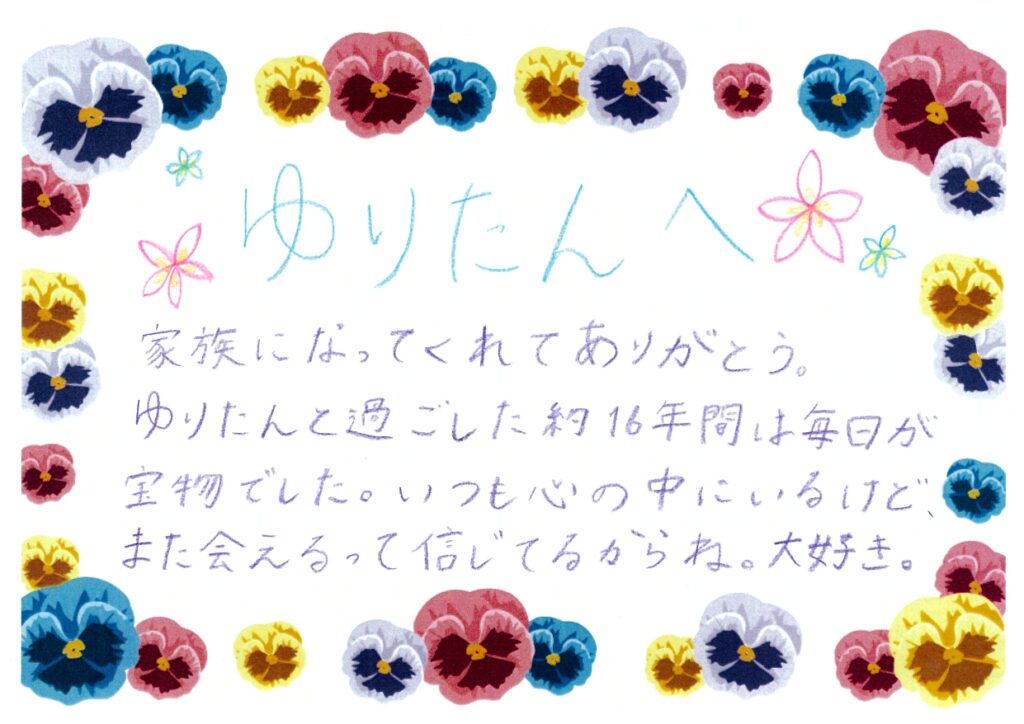 ゆりたんへ
家族になってくれてありがとう。
ゆりたんと過ごした約16年間は毎日が
宝物でした。いつも心の中にいるけど、
また会えるって信じてるからね。大好き。